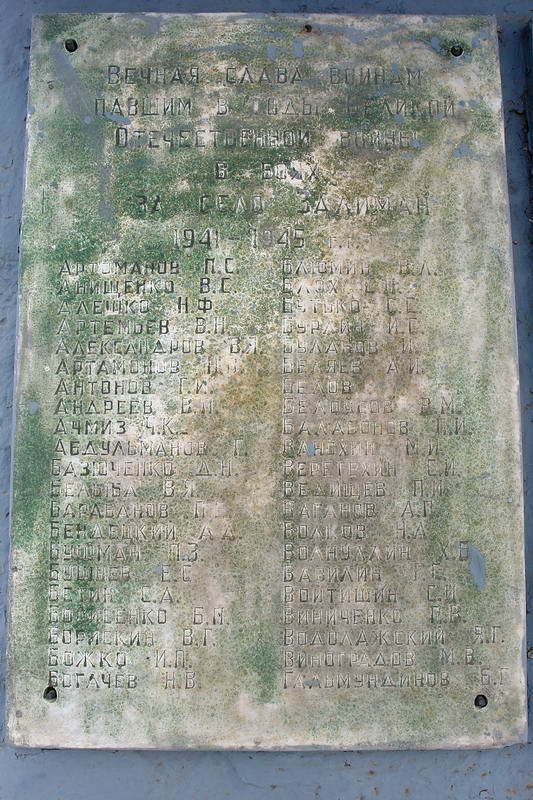 Вечная слава воинам
павшим в годы Великой
Отечественной войны
в боях
за село Залиман
1941-1945 г.г.
Артоманов П.С.
Анищенко В.С.
Алешко Н.Ф.
Артемьев В.Н.
Александров В.Я.
Артамонов
Антонов Г.И.
Андреев В.П.
Ачмиз Ч.К.
Абдульманов Г.
Базюченко Д.Н.
Белыба В.Я.
Барабанов
Бендецкий А.А.
Буфман П.З.
Бушнев Е.С.
Бетин С.А.
Борисенко Б.П.
Борискин В.Г.
Божко И.П.
Богачёв Н.В.
Блюмин В.Л.
Блох
Бутько С.С.
Бурдин И.С.
Буланов И.
Беляев А.И.
Белов
Белоусов В.М.
Балабонов П.И.
Ванюхин М.И.
Веретехин С.И.
Ведищев П.И.
Ваганов А.П.
Волков Н.А.
Волнуллин
Вавилин Г.С.
Войтишин С.И.
Виниченко Г.В.
Водолажский Я.Г.
Виноградов М.В.
Гальмундинов Б.Г.